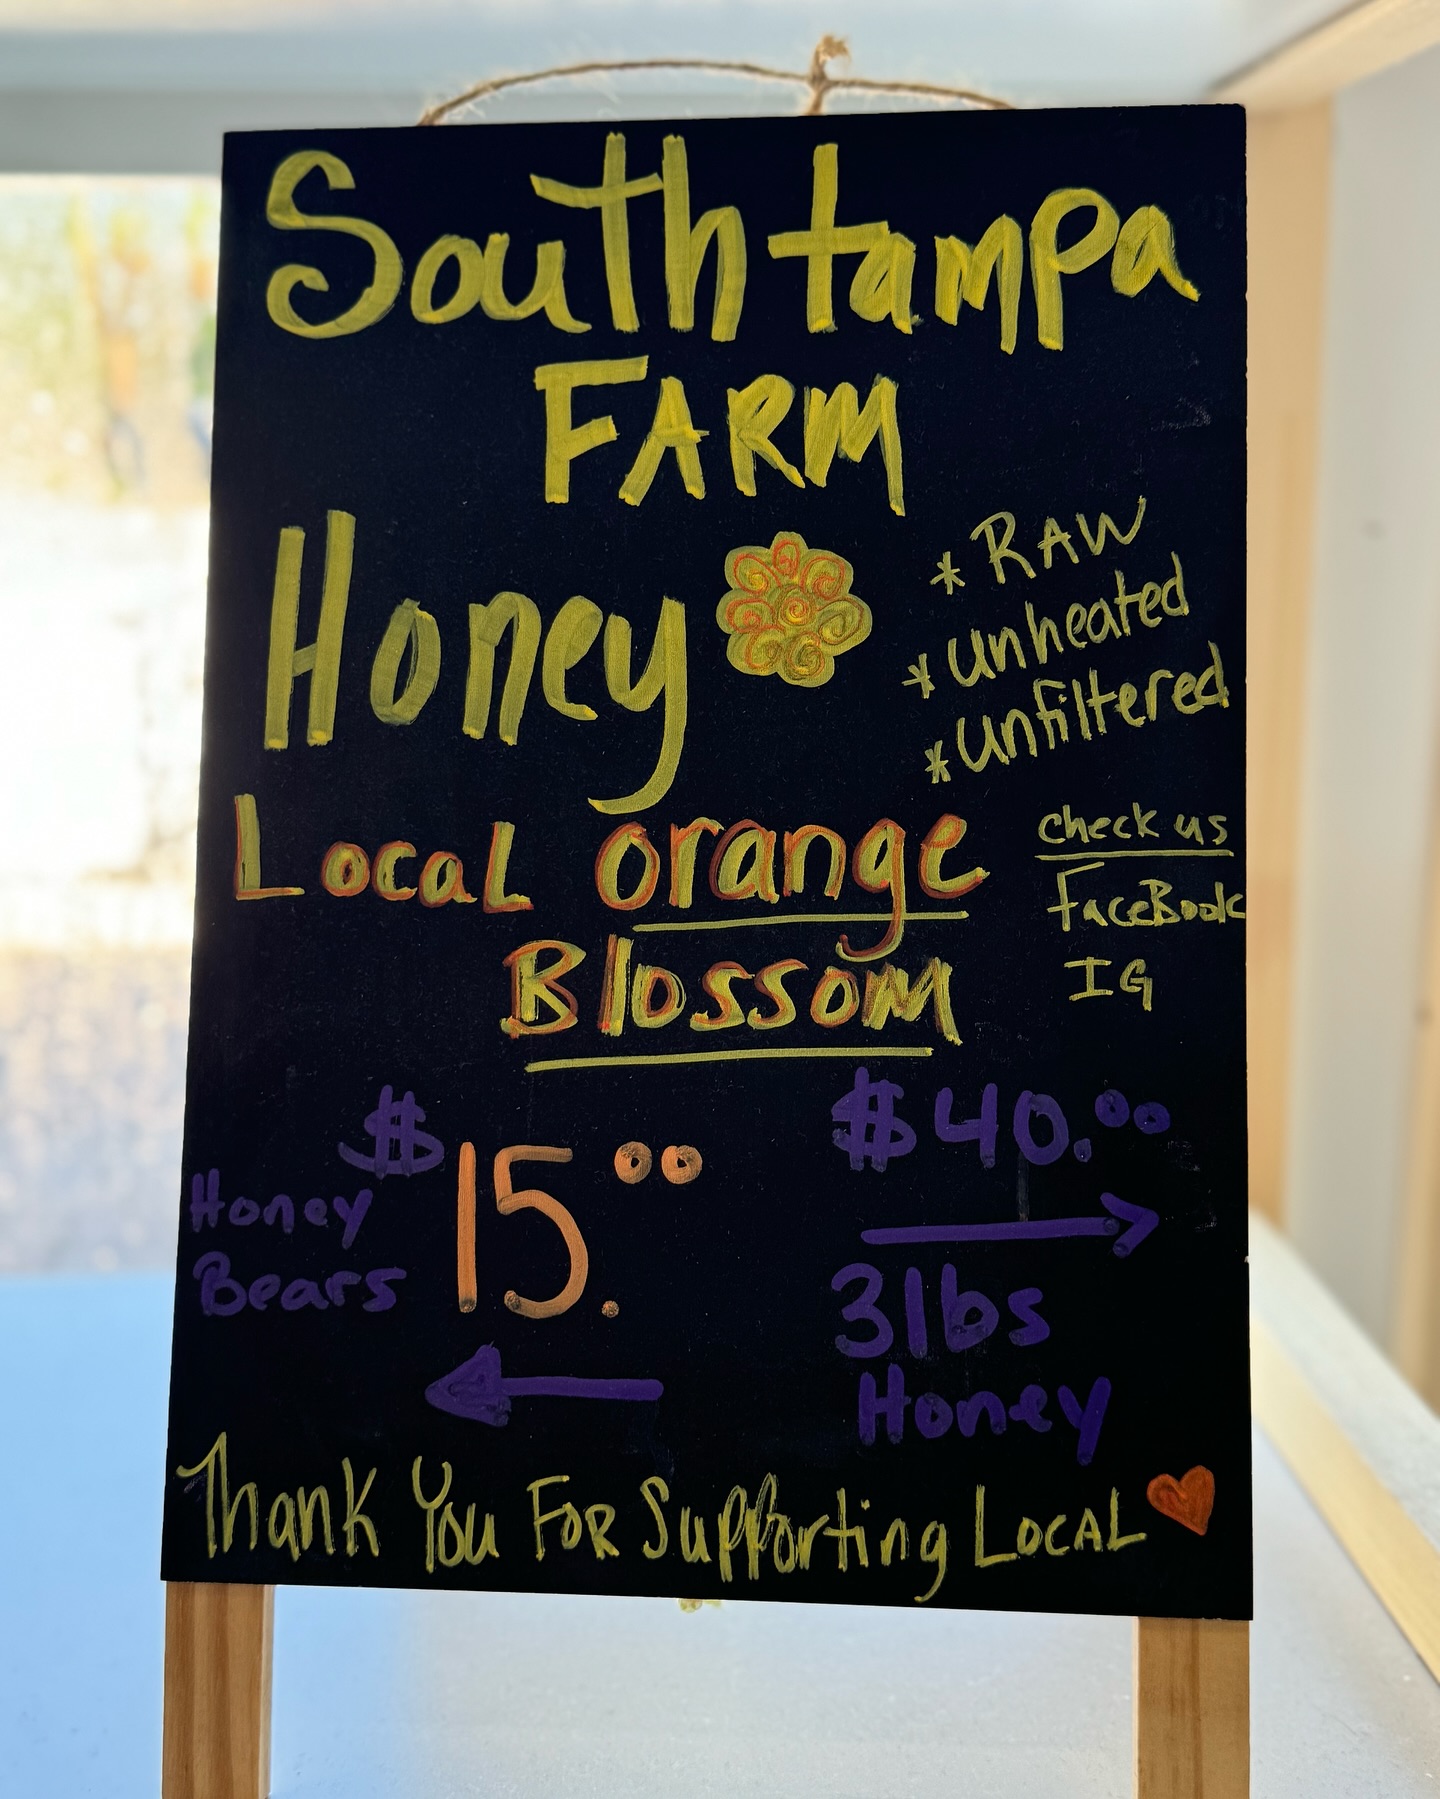 South tampa
FARM
Honey
* RAW
* unheated
* unfiltered
Local orange
Blossom
check us
FaceBook
IG
$ 15.00
Honey
Bears
$40.00
3lbs
Honey
Thank You FOR Supporting LOCAL